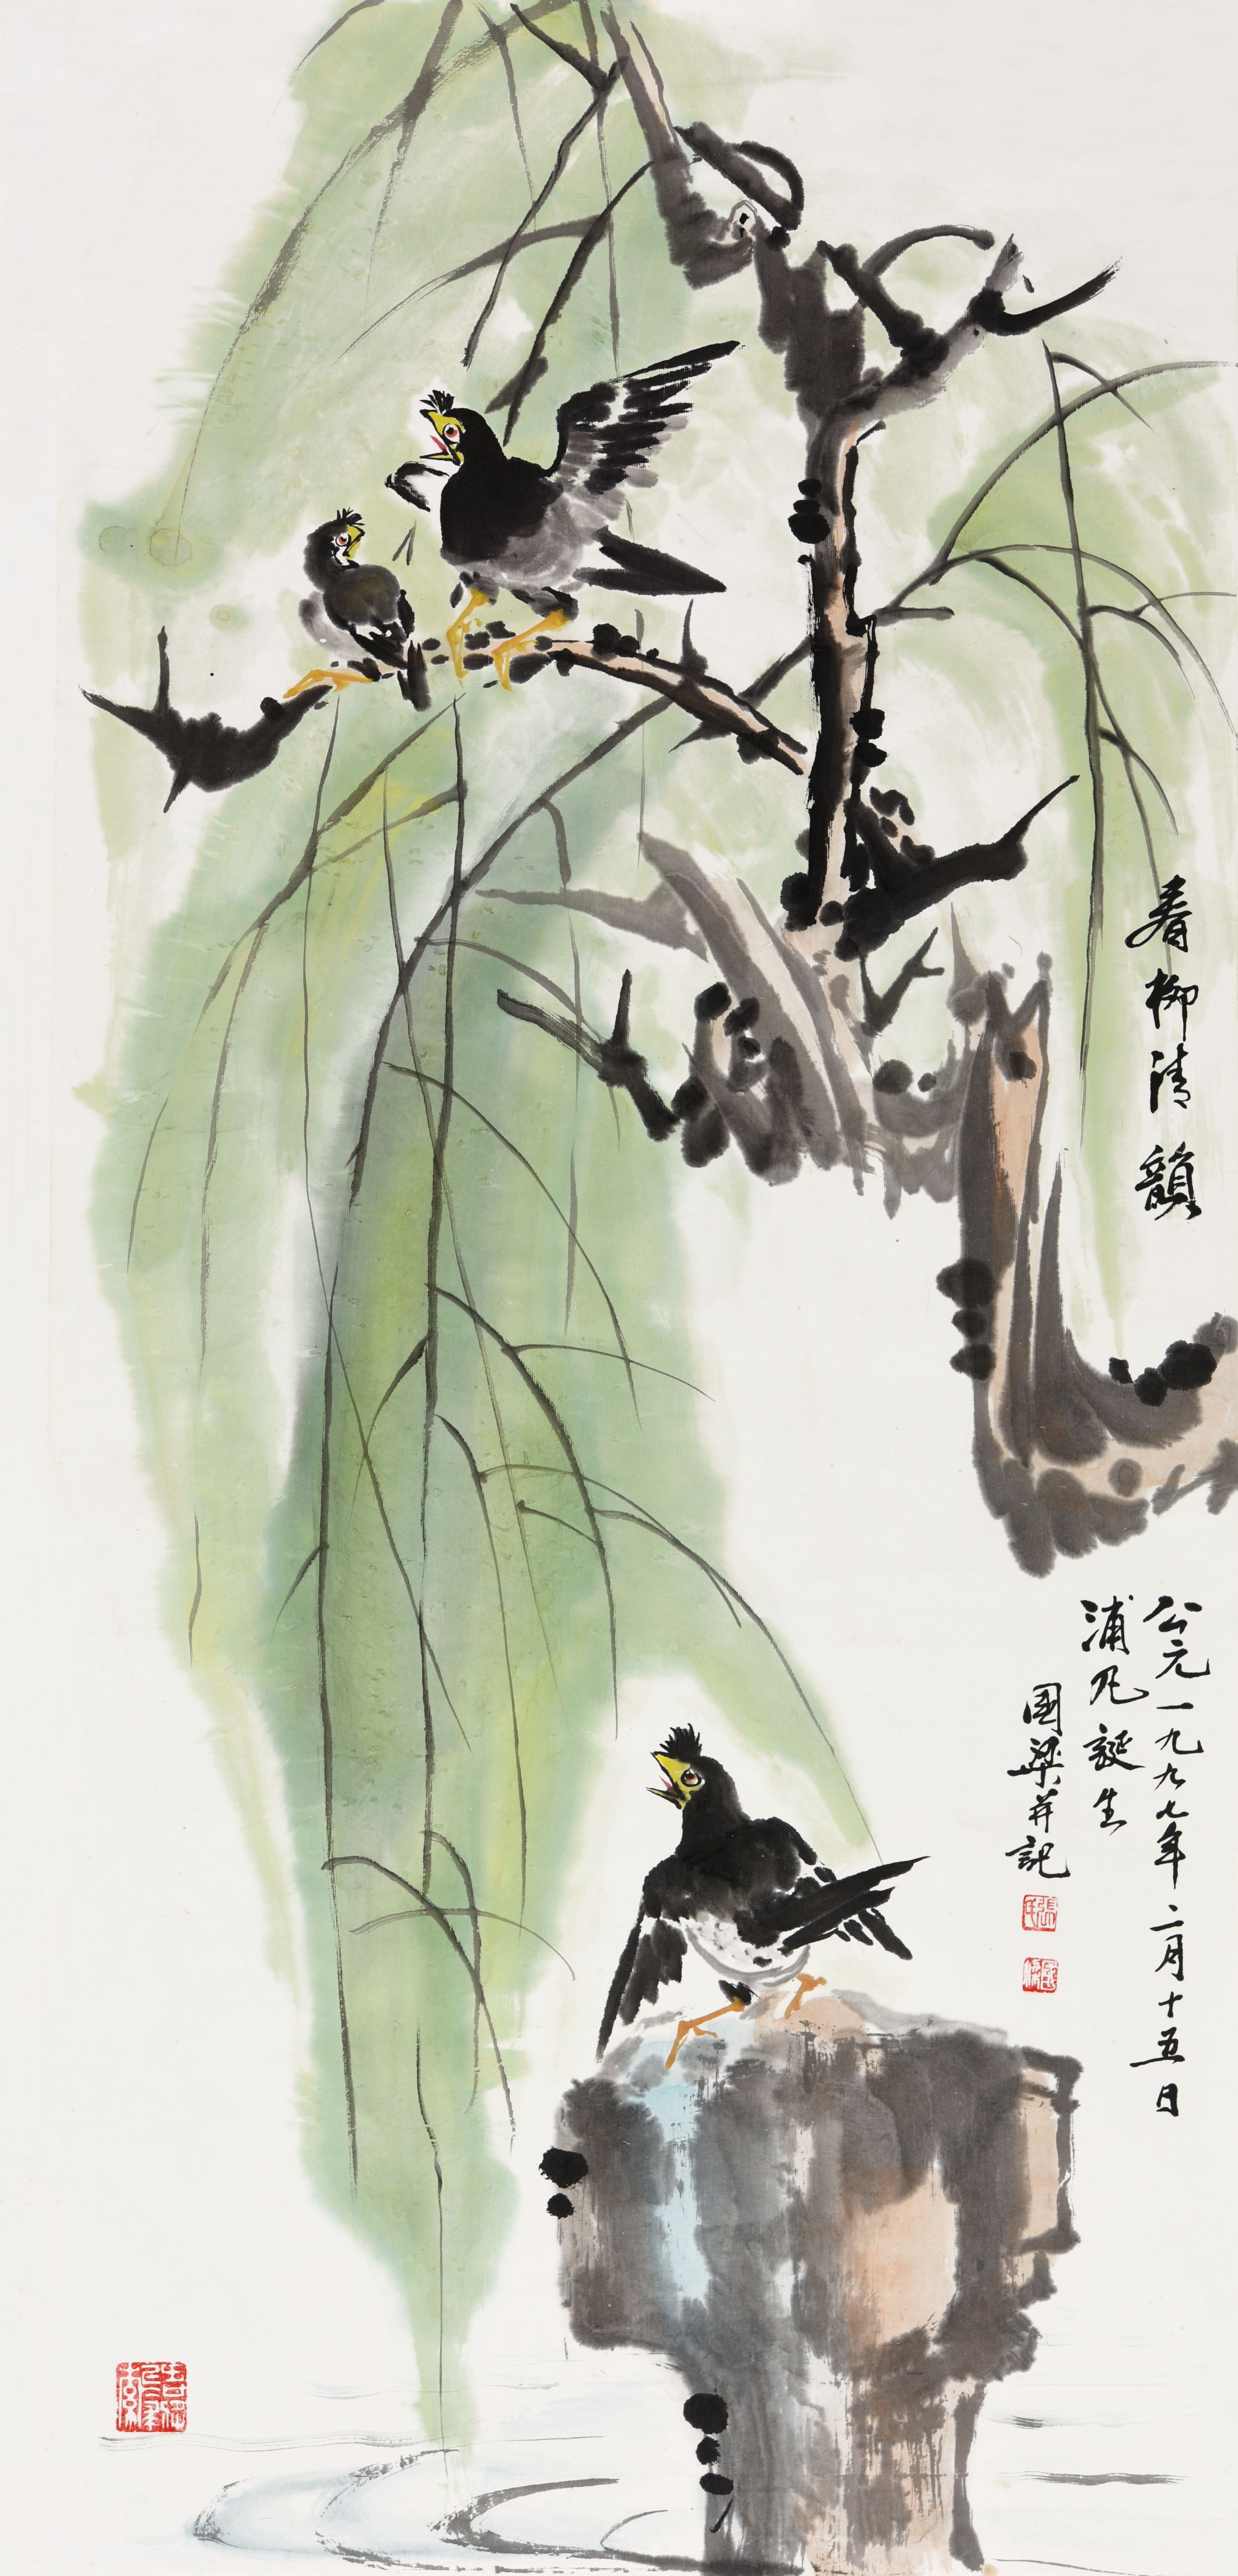 春柳清韻
公元一九九七年二月十五日
浦凡誕生
國梁并記